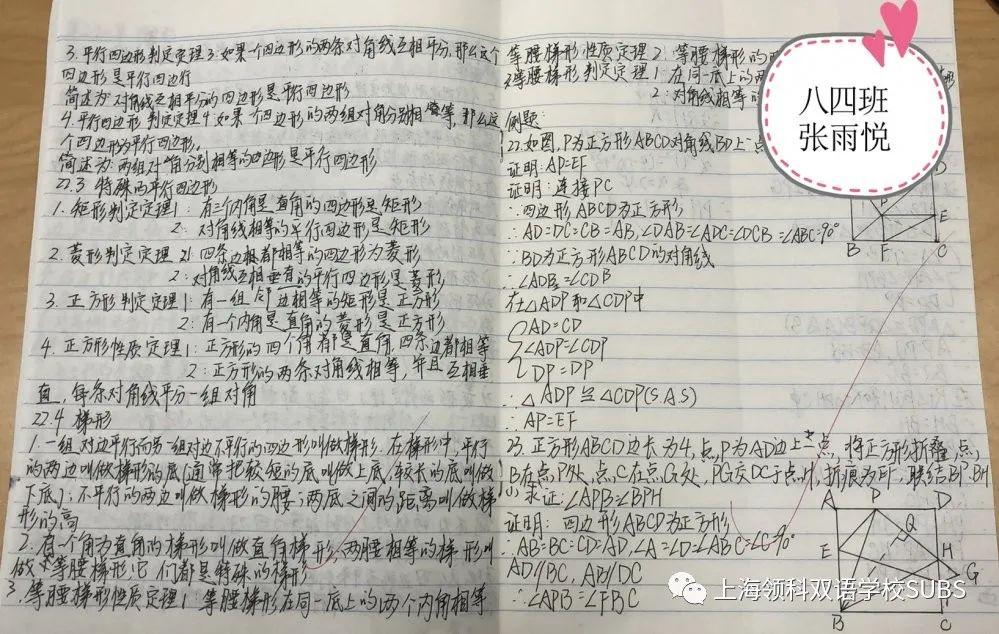 3.平行四边形判定定理3:如果一个四边形的两条对角线互相平分,那么这个
四边形是平行四边行
简述为:对角线互相平分的四边形是平行四边形
4.平行四边形判定定理4:如果一个四边形的两组对角分别相等,那么这
个四边形为平行四边形。
简述为:两组对角分别相等的四边形是平行四边形
22.3 特殊的平行四边形
1.矩形判定定理1:有三个内角是直角的四边形是矩形
2:对角线相等的平行四边形是矩形
2.菱形判定定理1:四条边都相等的四边形为菱形
2:对角线互相垂直的平行四边形是菱形
3.正方形判定定理1:有一组邻边相等的矩形是正方形
2:有一个内角是直角的菱形是正方形
4.正方形性质定理1:正方形的四个角都是直角,四条边都相等
2:正方形的两条对角线相等,并且互相垂
直,每条对角线平分一组对角
22.4 梯形
1.一组对边平行而另一组对边不平行的四边形叫做梯形.在梯形中,平行
的两边叫做梯形的底(通常把较短的底叫做上底,较长的底叫做
下底);不平行的两边叫做梯形的腰;两底之间的距离叫做梯
形的高
2.有一个角为直角的梯形叫做直角梯形,两腰相等的梯形叫
做等腰梯形,它们都是特殊的梯形
3.等腰梯形性质定理1:等腰梯形在同一底上的两个内角相等
等腰梯形性质定理2:等腰梯形的
等腰梯形判定定理1:在同一底上的两
2:对角线相等的
例题:
22.如图,P为正方形ABCD对角线BD上一点
证明:AP=EF
证明:连接PC
∵四边形ABCD为正方形
∴AD=DC=CB=AB,∠DAB=∠ADC=∠DCB=∠ABC=90°
∵BD为正方形ABCD的对角线
∴∠ADB=∠CDB
在△ADP和△CDP中
AD=CD
∠ADP=∠CDP
DP=DP
∴△ADP≌△CDP(S.A.S)
∴AP=EF
23.正方形ABCD边长为4,点P为AD边上一点,将正方形折叠,点
B在点P处,点C在点G处,PG交DC于点H,折痕为EF,联结BP、BH
求证:∠APB=∠BPH
证明:四边形ABCD为正方形
∴AB=BC=CD=AD,∠A=∠D=∠ABC=∠C=90°
AD∥BC,AB∥DC
∴∠APB=∠PBC
八四班
张雨悦
D
P
E
B F C
A P D
Q
E H
G
B C
上海领科双语学校SUBS